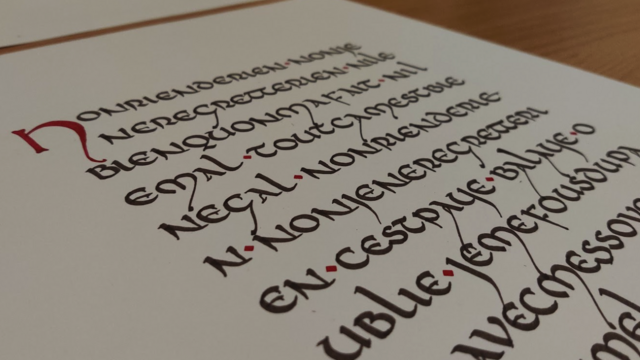 NONRIENDERIEN·NONJE
NEREGRETTERIEN·NILE
BIENQUONMAFAIT·NIL
EMAL·TOUTCAMESTBIE
NEGAL·NONRIENDERIE
N·NONJENEREGRETTERI
EN·CESTPAYE·BALAYE·O
UBLIE·JEMEFOUSDUPA
AVECMESSOU